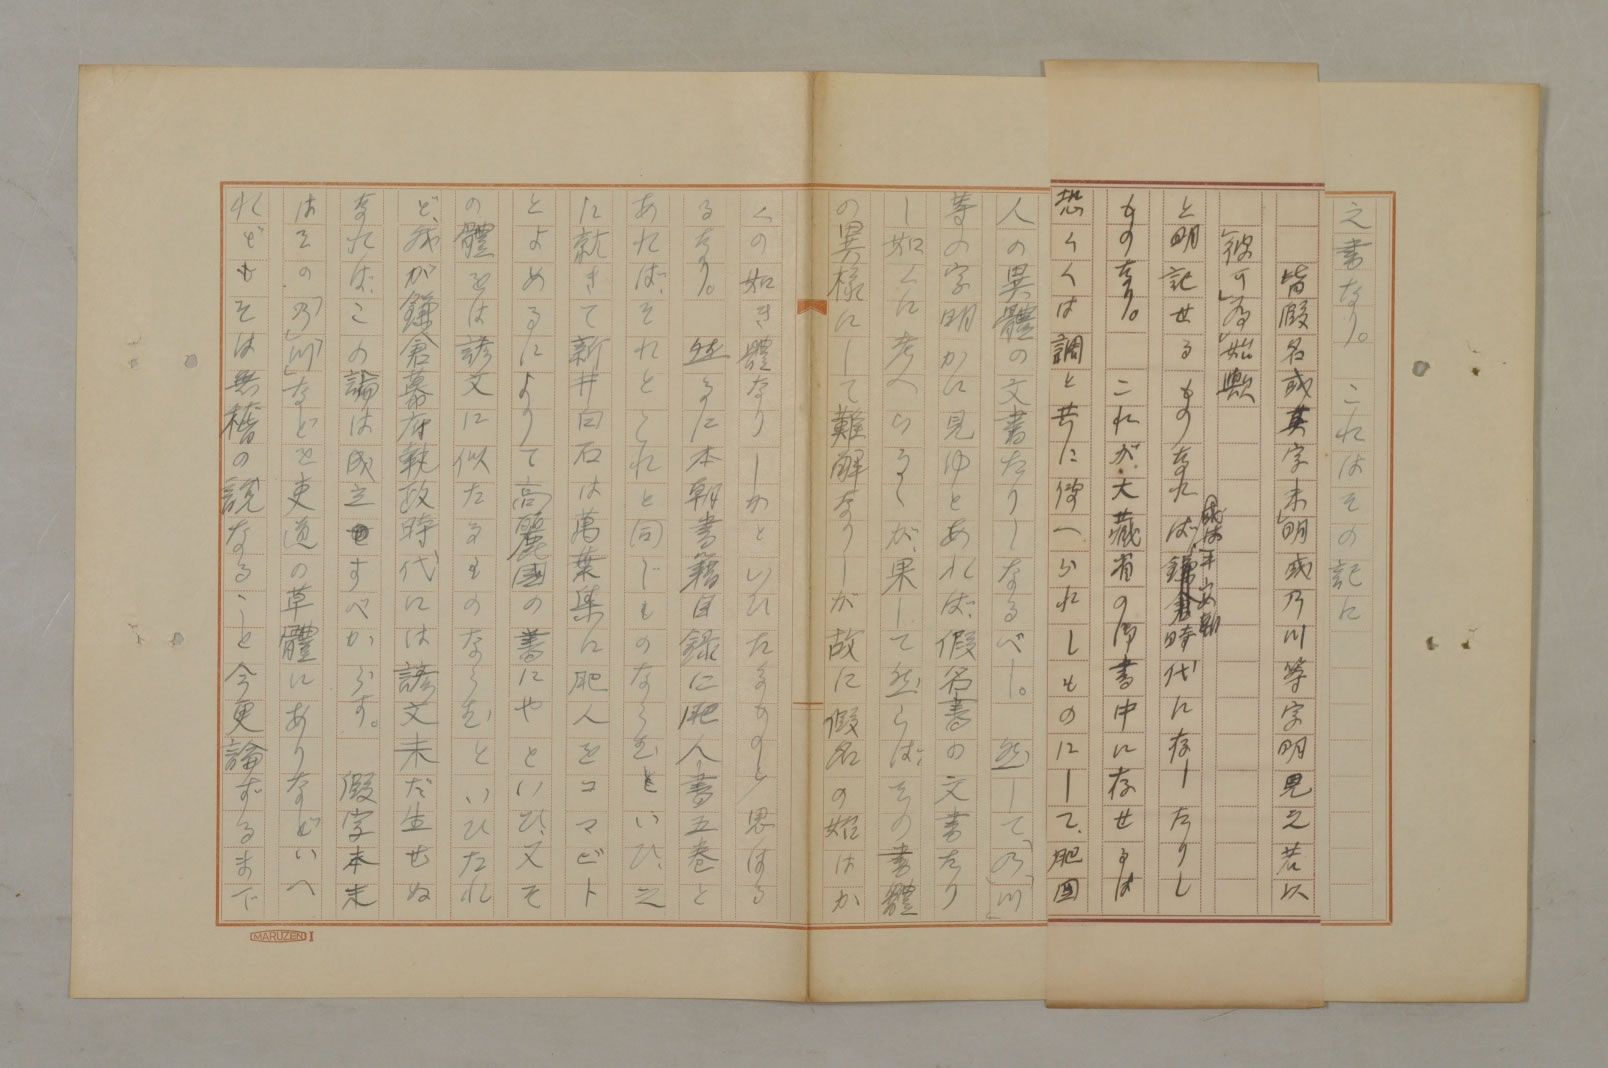 之書なり。 これはその記に
皆假名或其字未明或乃川等字明見之若以
「彼可」為「始歟
と明記せるものなれば、鎌倉時代に存したりし
或は平安朝
もの なり。 これが、大藏省の御書中に存せるは
恐らくは調と共に傳へられしものにして、肥國
人の異體の文書たりしなるべし。 然して、「乃」「川」
等の字明かに見ゆとあれば、假名書の文書たり
し如くに考へらるゝが、果して然らば、その書體
の異樣にして難解なりしが故に假名の始はか
くの如き體なりしかといひたるものと思はる
るなり。 然るに本朝書籍目録に肥人書五卷と
あれば、それとこれと同じものならむといひ、之
に就きて新井白石は萬葉集に肥人をコマビト
とよめるによりて高麗國の書にやといひ、又そ
の體をは諺文に似たるものならむといひたれ
ど、我が鎌倉幕府執政時代には諺文未だ生せぬ
なれば、この論は成立すべからず。 假字本末
はその「乃」「川」などを吏道の草體にありなどいへ
れどもそは無稽の説なること今更論ずるまで
MARUZEN I